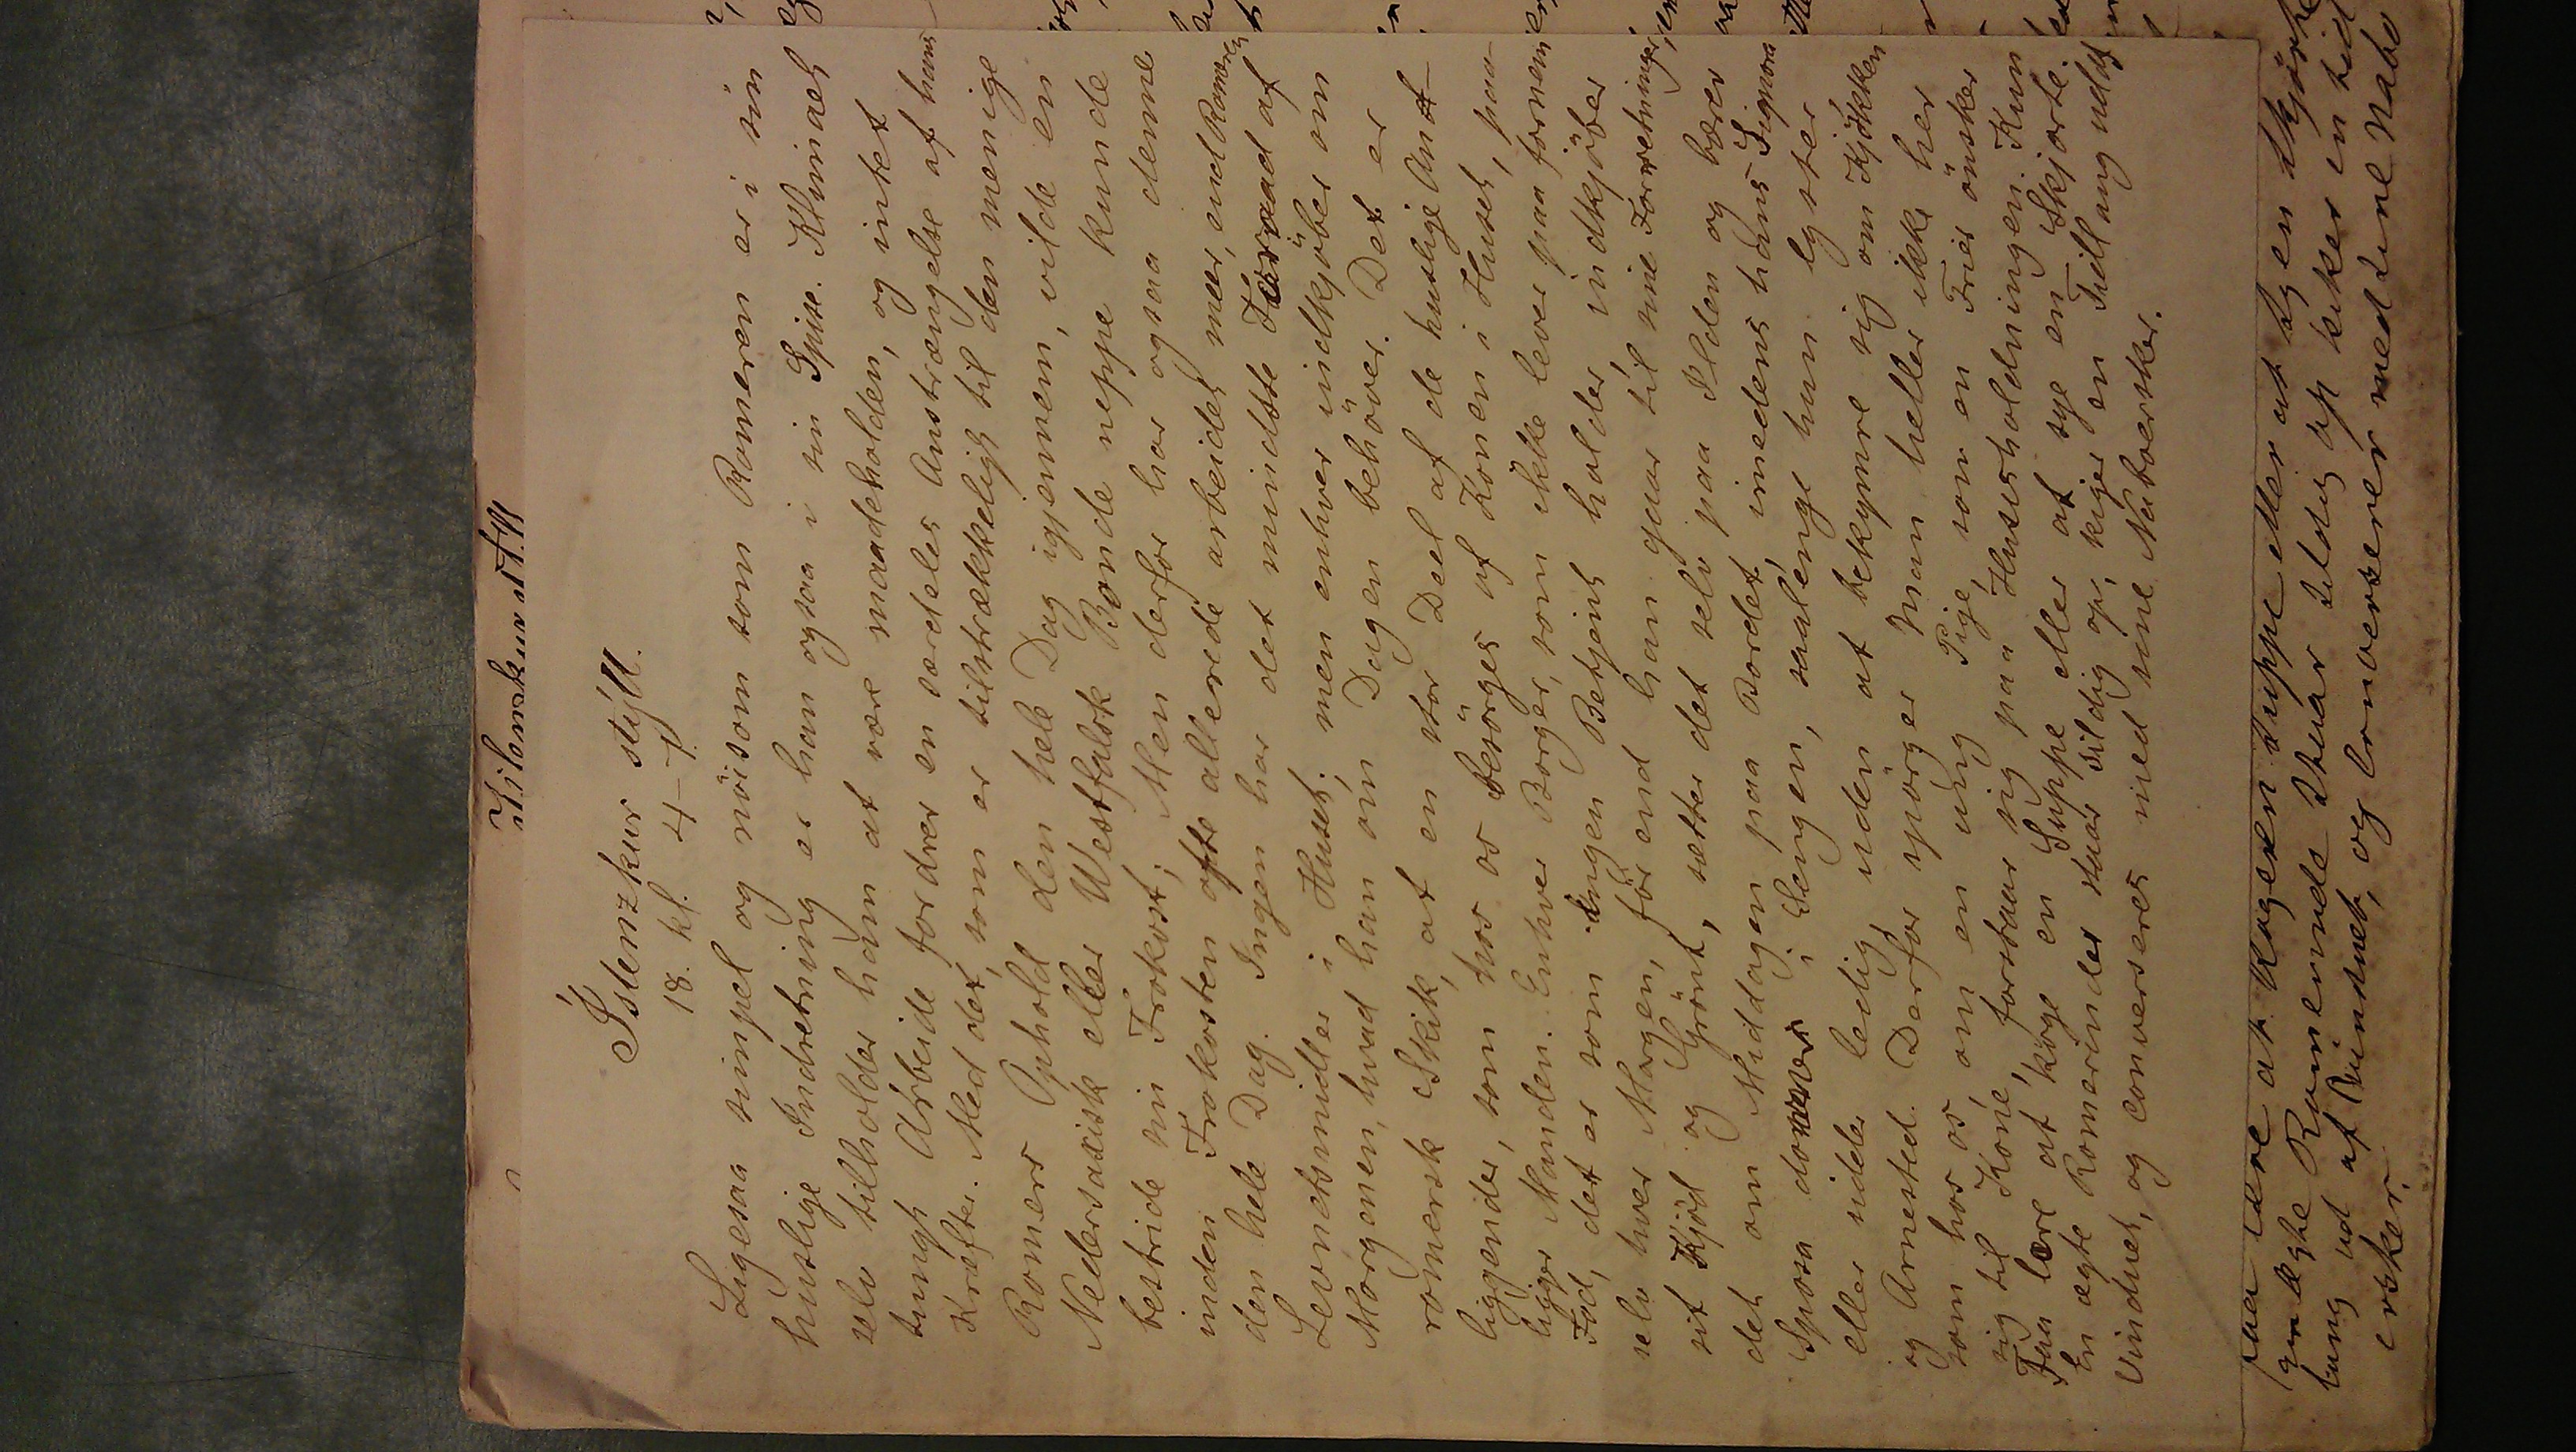 Íslenzkur stýll
Íslenzkur stýll.
18. kl. 4–7.
Ligesaa simpel og nöisom som Romeren er i sin
huslige Indretning er han ogsaa i sin Spise. Klimaet
selv tilholder ham at være maadeholden, og intet
tungt Arbeide fordrer en særdeles Anstrængelse af hans
Kræfter. Med det, som er tilstrækkeligt til den menige
Romers Ophold den hele Dag igjennem, vilde en
Nedersaxisk eller Westfalsk Bonde neppe kunde
bestride sin Frokost; Men derfor har ogsaa denne
inden Frokosten ofte allerede arbeidet meer, end Romeren
den hele Dag. Ingen har det mindste Forraad af
Levnetsmidler i Huset; men enhver indkjöber om
Morgenen, hvad han om Dagen behöver. Det er
romersk Skik, at en stor Deel af de huslige Anl-
liggender, som hos os besörges af Konen i Huset, paa-
ligger Manden. Enhver Borger, som ikke lever paa fornem
Fod, det er som ingen Betjent holder, indkjöber
selv hver Morgen, för end han gaar til sine Forretninger,
sit Kjöd og Grönt, sætter det selv paa Ilden og bærer
det om Middagen paa Bordet, imedens hans Signora
Sposa dovner i Sengen, saalenge hun lyster
eller sidder ledig, uden at bekymre sig om Kjökken
og Arnested. Derfor spörger man heller ikke her
som hos os, om en ung Pige, som en Frier önsker
sig til Kone, forstaar sig paa Huusholdningen. Kun
Faa lære at koge en Suppe eller at sye en Skjorte.
En ægte Romerinde staar sildig op, kiger en Tidlang ud af
Vinduet, og converserer med sine Naboersker.
faa lære at kogeen suppe eller at sy en skjorte
gen ægte Romerinde staar sildig op kiker en tid
lang ud af Vinduet, og converserer med sine Nabo
ersker.